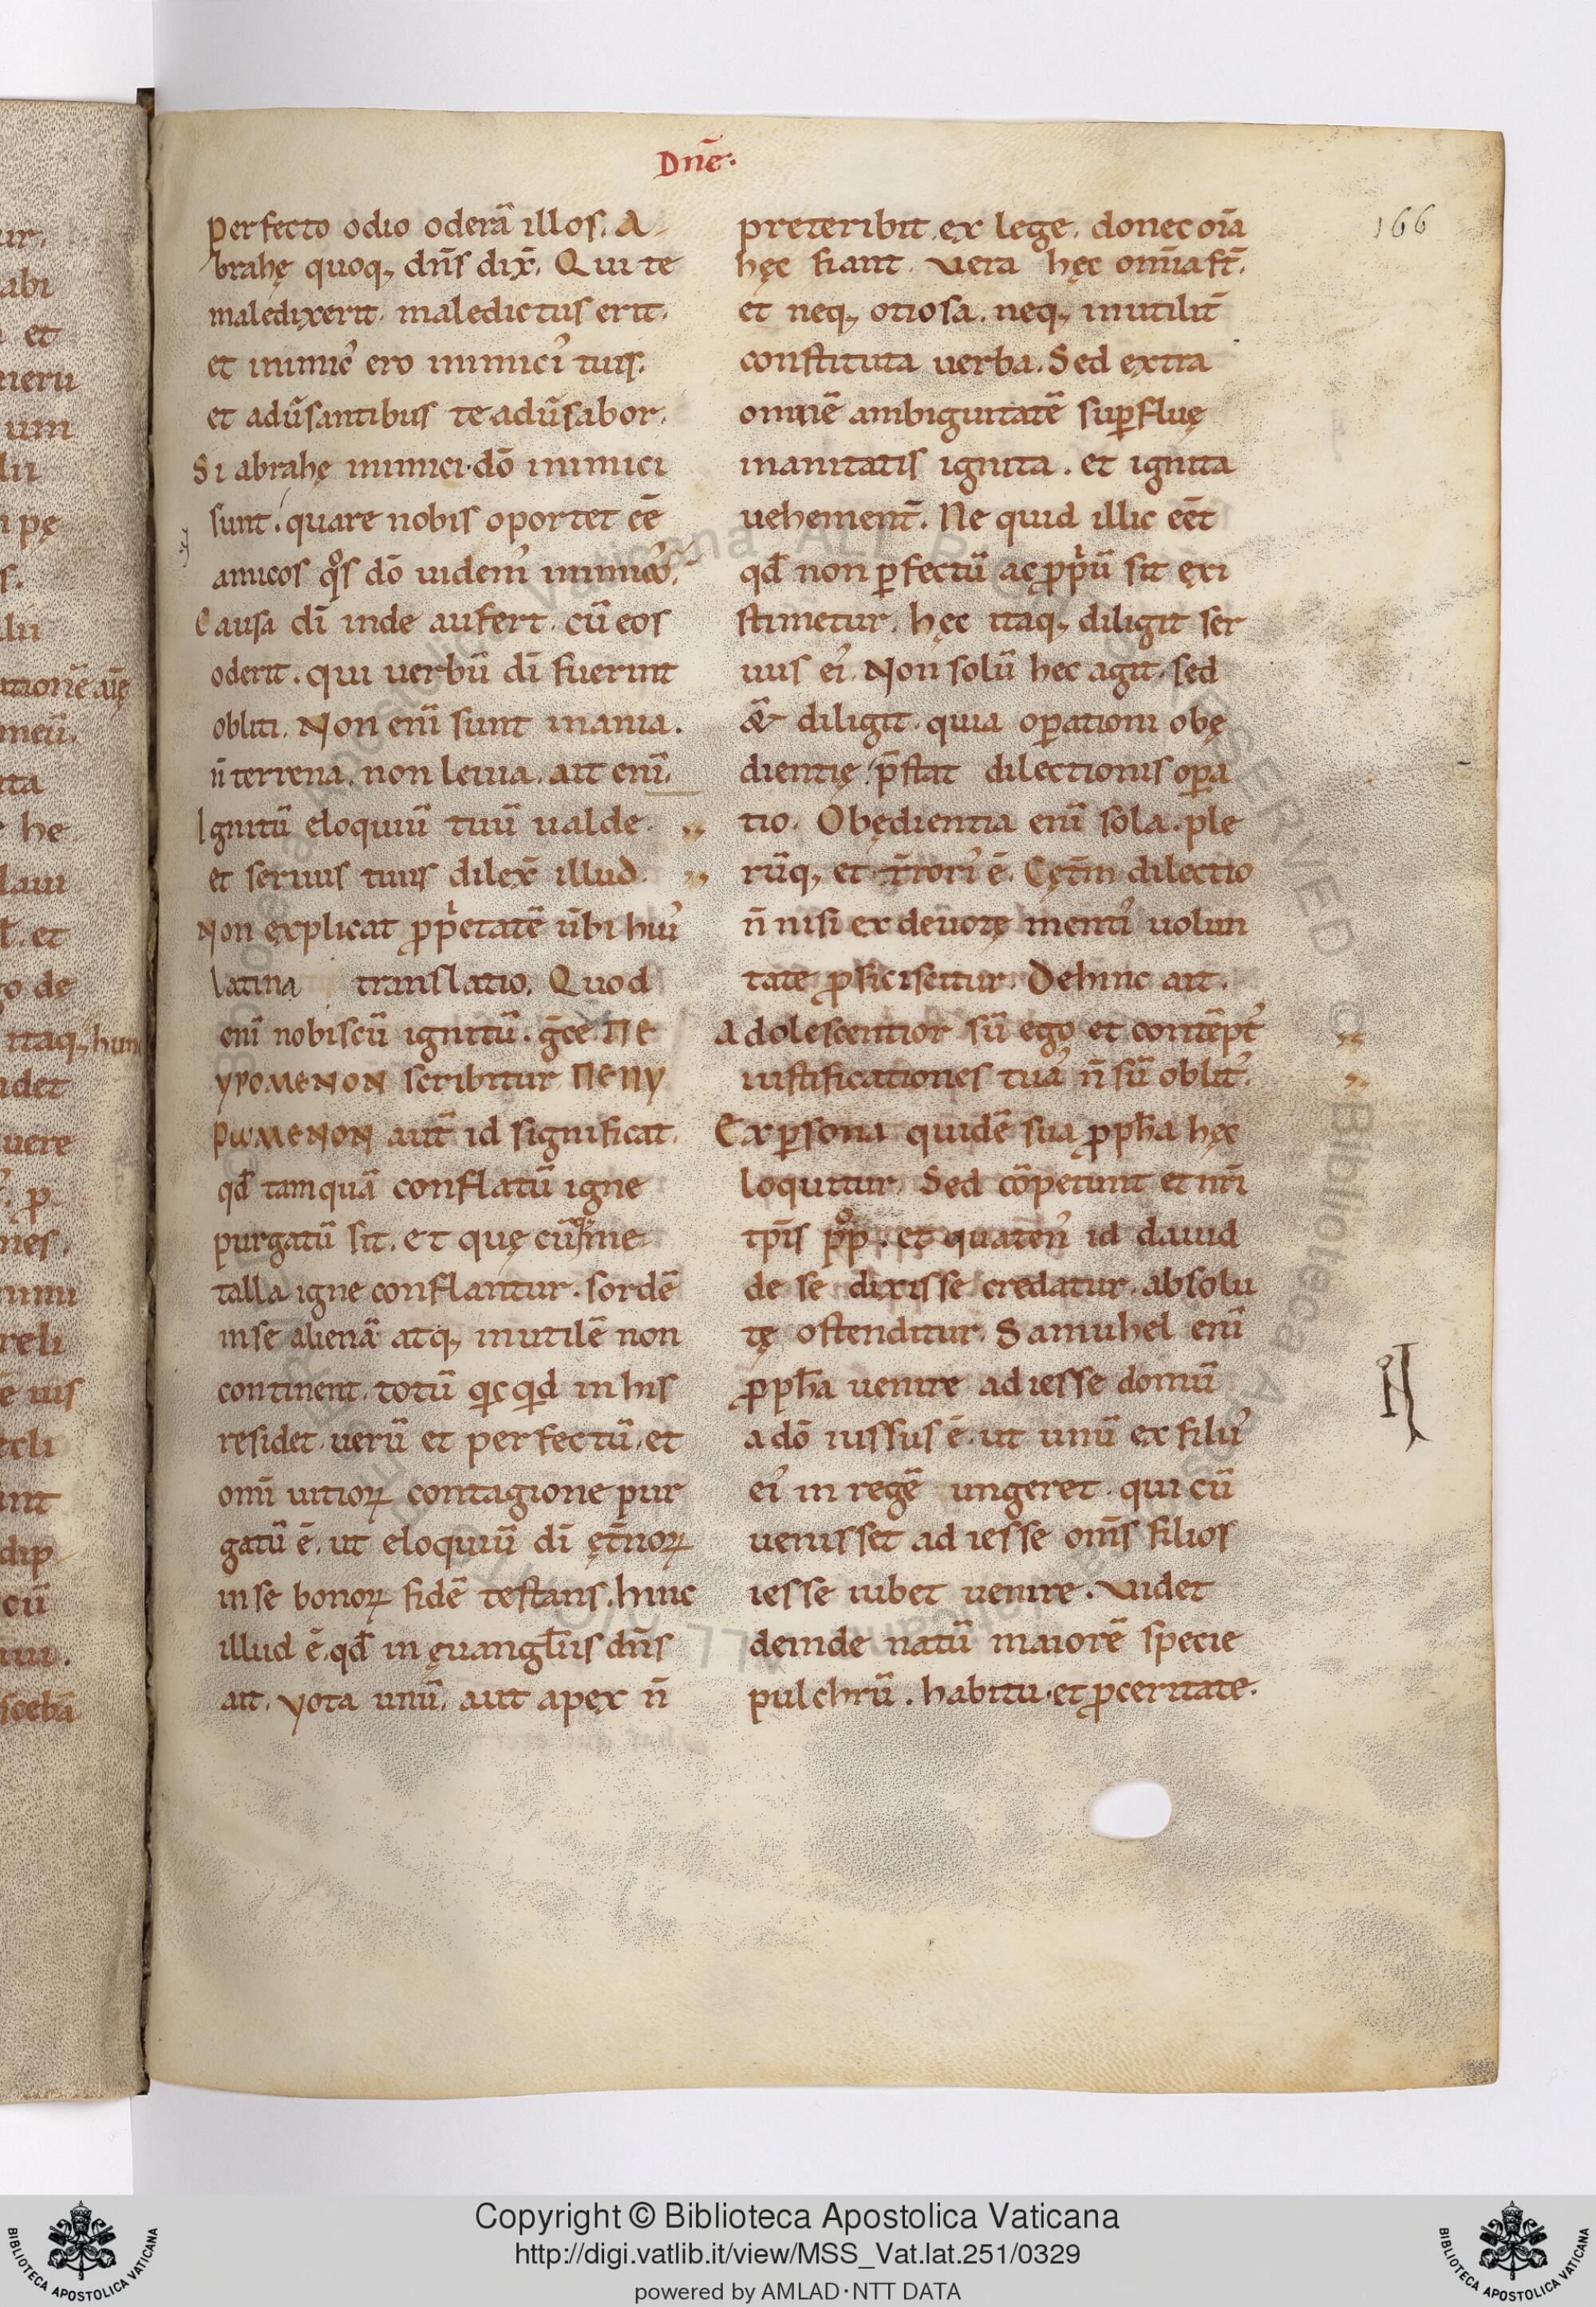 Dn̄e.
166
perfecto odio oderā illos. A
brahę quoq; dn̄s dix̄. Qui te
maledixerit. maledictus erit.
et inimic᾽ ero inimici᾽ tuis.
et adūsantibus te adūsabor.
Si abrahę inimici dō inimici
sunt. quare nobis oportet eē
amicos qͦs dō uidem᾽ inimicos.
Causa dī inde aufert. cū eos
oderit. qui uerbū dī fuerint
obliti. Non enī sunt inania.
n̄ terrena. non leuia. ait enī.
Ignitū eloquiū tuū ualde.
et seruus tuus dilex̄ illud.
Non explicat ꝓpͥetatē ūbi hui᾽
latina translatio. Quod
enī nobiscū ignitū. gc̄e ΠΕ
ΥΡΟΜΕΝΟΝ scribitur ΠΕΠΥ
ΡωΜΕΝΟΝ aut̄ id significat.
qd̄ tamquā conflatū igne
purgatū sit. et quę cūq; me
talla igne conflantur. sordē
in se alienā atq; inutilē non
continent. totū qͥcqͥd in his
residet. uerū et perfectū. et
omī uitioꝝ contagione pur
gatū ē. ut eloquiū dī ęt̄noꝝ
in se bonoꝝ fidē testans. hinc
illud ē. qd̄ in ęuangl̄iis dn̄s
ait. yota unū. aut apex n̄
preteribit ex lege. donec oīa
hęc fiant. Vera hęc omīa st̄.
et neq; otiosa. neq; inutilit̄
constituta uerba. Sed extra
omnē ambiguitatē suꝑfluę
inanitatis ignita. et ignita
uehement̄. Ne quid illic eēt
qd̄ non ꝑfectū ac ꝓpͥū sit exi
stimetur. hęc itaq; diligit ser
uus ei᾽. Non solū hec agit. sed
&̄ diligit. quia oꝑationi obę
dientię p̄stat dilectionis oꝑa
tio. Obędientia enī sola. ple
rūq; et t̄rori᾽ ē. Cęt̄m dilectio
n̄ nisi ex deuotę menti᾽ uolun
tate ꝓficiscitur. Dehinc ait.
Adolescentior sū ego et contēpt᾽
iustificationes tua᾽ n̄ sū oblit᾽.
Ex ꝑsona quidē sua ꝓph̄a hęc
loquitur. Sed cōpetunt et nr̄i
tp̄is pͦpͥ. et quaten᾽ id dauid
de se dixisse credatur. absolu
tę ostenditur. Samuhel enī
ꝓph̄a uenire ad iesse domū
a dō iussus ē. ut unū ex filii᾽
ei᾽ in regē ungeret. qui cū
uenisset ad iesse om̄s filios
iesse iubet uenire. Videt
deinde natū maiorē specie
pulchrū. habitu. et ꝓceritate.
Copyright © Biblioteca Apostolica Vaticana
http://digi.vatlib.it/view/MSS_Vat.lat.251/0329
powered by AMLAD·NTT DATA
BIBLIOTECA APOSTOLICA VATICANA
BIBLIOTECA APOSTOLICA VATICANA